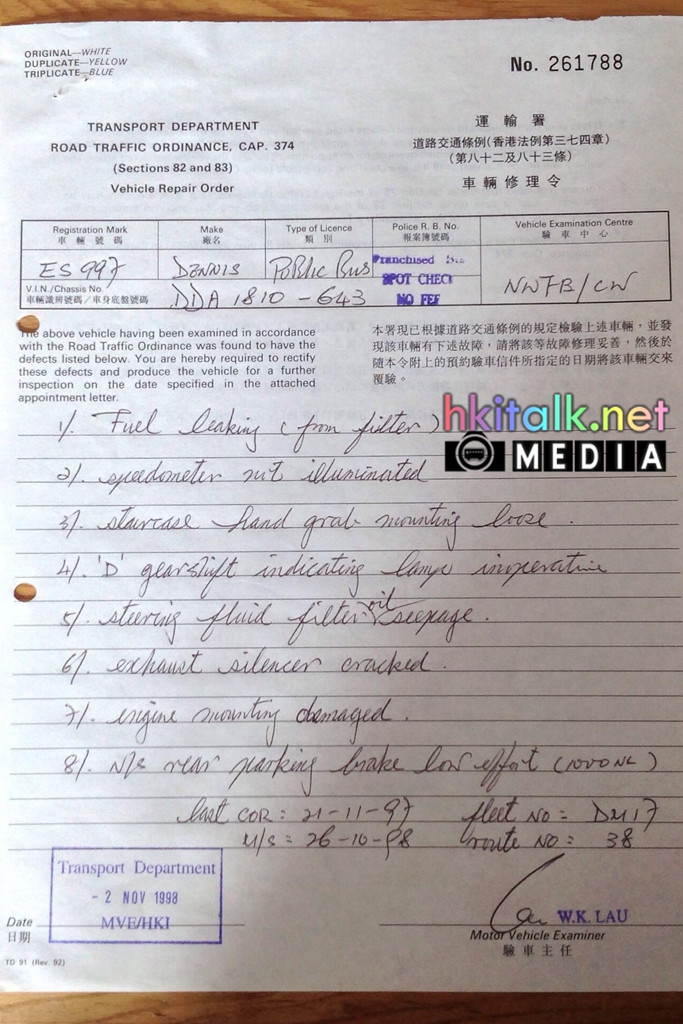 ORIGINAL—WHITE
DUPLICATE—YELLOW
TRIPLICATE—BLUE
No. 261788
TRANSPORT DEPARTMENT
ROAD TRAFFIC ORDINANCE, CAP. 374
(Sections 82 and 83)
Vehicle Repair Order
運輸署
道路交通條例(香港法例第三七四章)
(第八十二及八十三條)
車輛修理令
Registration Mark
車輛號碼
ES 997
Make
廠名
DENNIS
Type of Licence
類別
Public Bus
Police R. B. No.
報案簿號碼
Franchised Bus
SPOT CHECK
NO FEE
Vehicle Examination Centre
驗車中心
NWFB/CW
V.I.N./Chassis No.
車輛識辨號碼/車身底盤號碼
DDA 1810 - 643
The above vehicle having been examined in accordance
with the Road Traffic Ordinance was found to have the
defects listed below. You are hereby required to rectify
these defects and produce the vehicle for a further
inspection on the date specified in the attached
appointment letter.
本署現已根據道路交通條例的規定檢驗上述車輛,並發
現該車輛有下述故障,請將該等故障修理妥善,然後於
隨本令附上的預約驗車信件所指定的日期將該車輛交來
覆驗。
hkitalk.net
MEDIA
1/. Fuel leaking (from filter)
2/. speedometer not illuminated
3/. staircase hand grab mounting loose.
4/. 'D' gearshift indicating lamp inoperative
5/. steering fluid filter oil seepage.
6/. exhaust silencer cracked.
7/. engine mounting damaged.
8/. N/s rear parking brake low effort (1000 NL)
last COR: 21-11-97 fleet NO = DM17
M/S = 26-10-98 route NO: 38
Transport Department
- 2 NOV 1998
MVE/HKI
Date
日期
W.K. LAU
Motor Vehicle Examiner
驗車主任
TD 91 (Rev. 92)